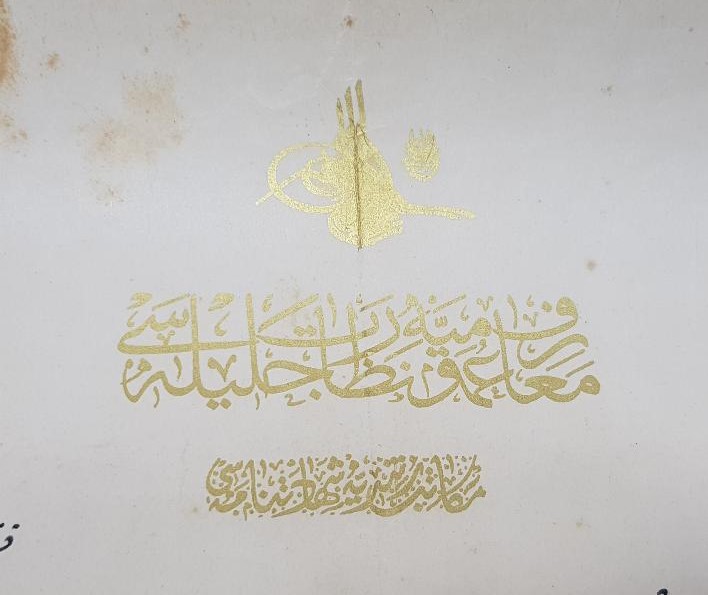 معارف عمومیه نظارت جلیله سی
مکاتب رشدیه شهادتنامه سی